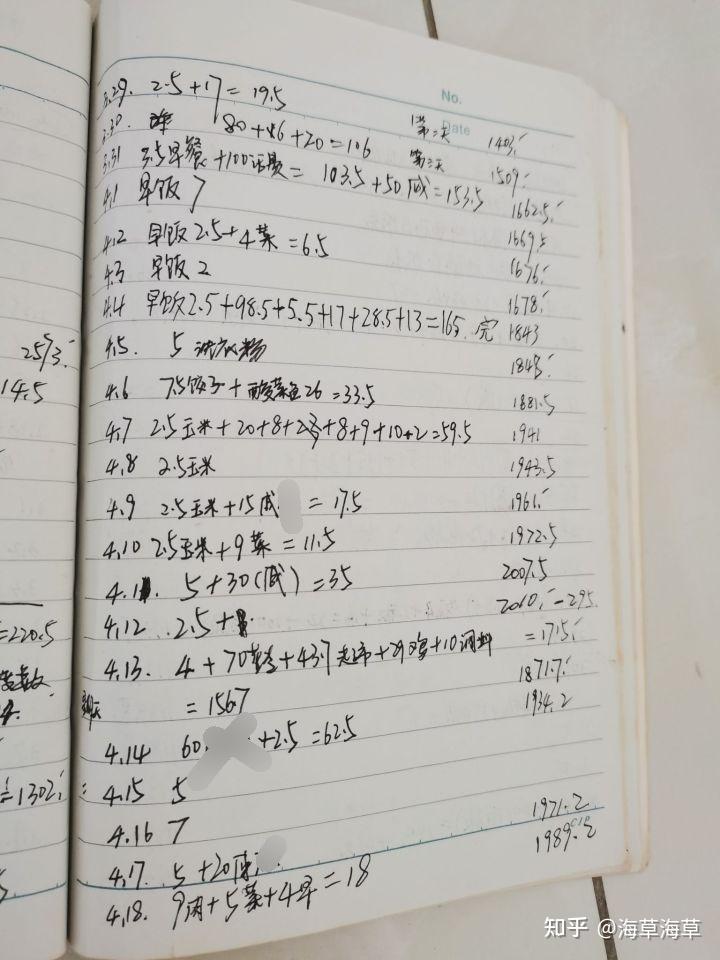 No.
Date
3.29. 2.5+17=19.5
3.30. 80+6+20=106 第二天 1403
3.31 3.5早餐+100话费=103.5+50成=153.5 第三天 1509
4.1 早饭7 1662.5
4.2 早饭2.5+4菜=6.5 1669.5
4.3 早饭2 1676
4.4 早饭2.5+98.5+5.5+17+28.5+13=165.完 1678
1843
4.5. 5 1848
4.6 7.5饺子+酸菜鱼26=33.5 1881.5
4.7 2.5玉米+20+8+ +8+9+10+2=59.5 1941
4.8 2.5玉米 1943.5
4.9 2.5玉米+15成 =17.5 1961
4.10 2.5玉米+9菜=11.5 1972.5
4.11. 5+30(成)=35 2007.5
4.12 2.5+ 2010 -295
4.13. 4+70 +43.7 +29鸡+10调料 =1715
=156.7 1871.7
4.14 60. +2.5=62.5 1934.2
4.15 5
4.16 7
4.17. 5+20 1971.2
4.18. 9肉+5菜+4早=18 1989.2
25/3
14.5
=220.5
=1302
知乎 @海草海草